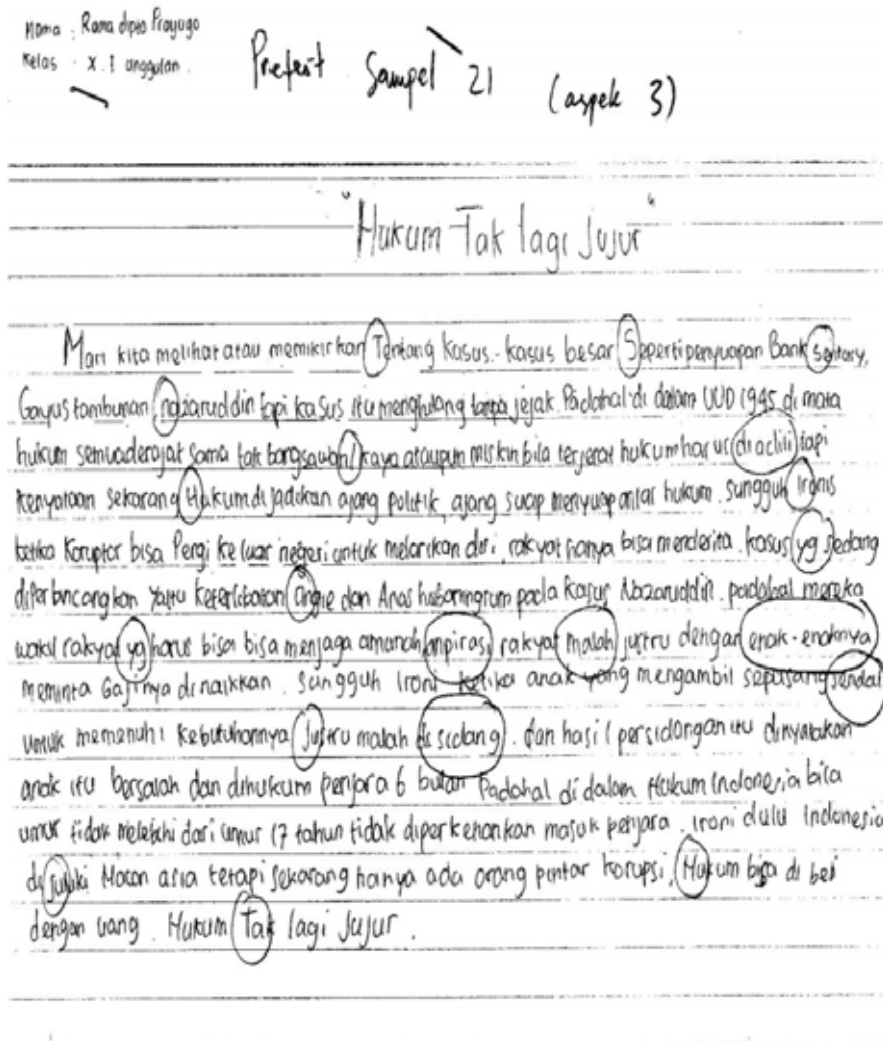 Nama : Rama dipto Prayugo
Kelas : X. 1 unggulan
Pretest Sampel 21 (aspek 3)
"Hukum Tak lagi Jujur"
Mari kita melihat atau memikirkan Tentang kasus-kasus besar Seperti penyuapan Bank sentory,
Gayus tambunan, nazaruddin tapi kasus itu menghilang tanpa jejak. Padahal di dalam UUD 1945 di mata
hukum semua derajat sama tak bangsawan/kaya ataupun miskin bila terjerat hukum harus di adili tapi
kenyataan sekarang Hukum di jadikan ajang politik, ajang suap menyuap antar hukum. sungguh ironis
ketika Koruptor bisa Pergi ke luar negeri untuk melarikan diri, rakyat hanya bisa menderita. kasus yg sedang
diperbincangkan Yaitu keterlibatan angie dan Anas hubaningrum pada kasus Nazaruddin. padahal mereka
wakil rakyat yg harus bisa bisa menjaga amanah anpirasi rakyat malah justru dengan enak-enaknya
meminta Gajinya dinaikkan. Sungguh Ironi ketika anak yang mengambil sepasang sendal
untuk memenuhi kebutuhannya Justru malah di sidang. dan hasil persidangan itu dinyatakan
anak itu bersalah dan dihukum penjara 6 bulan Padahal di dalam Hukum Indonesia bila
umur tidak melebihi dari umur 17 tahun tidak diperkenankan masuk penjara. ironi dulu Indonesia
di juluki Macan asia tetapi sekarang hanya ada orang pintar korupsi, Hukum bisa di beli
dengan uang. Hukum Tak lagi Jujur.